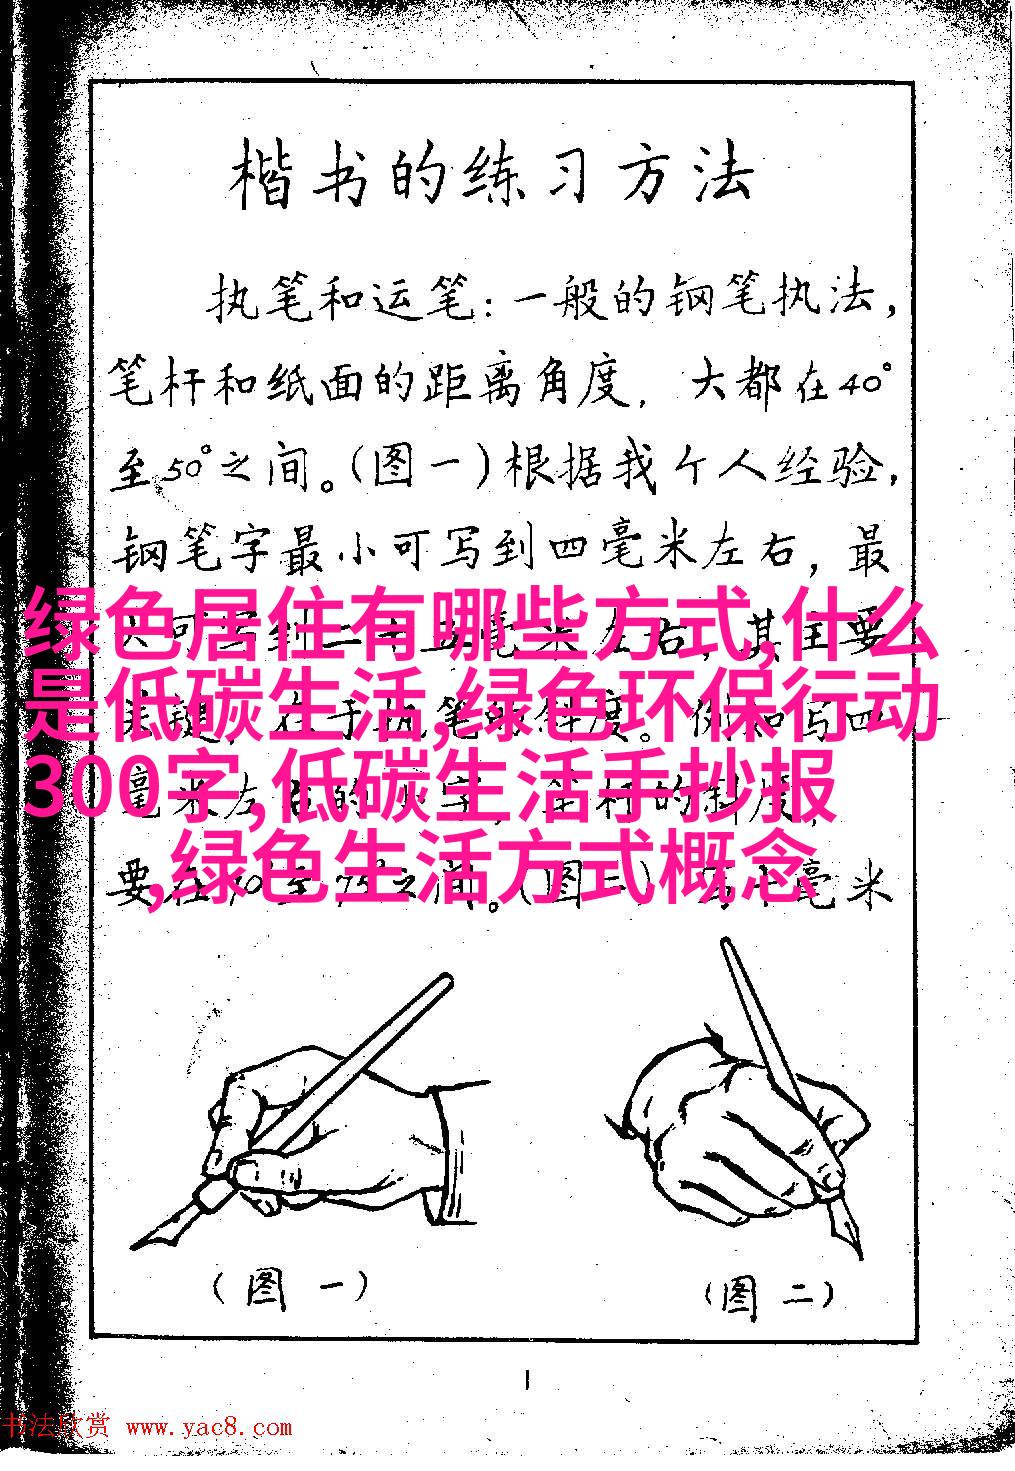 楷书的练习方法
执笔和运笔：一般的钢笔执法，
笔杆和纸面的距离角度，大都在40°
至50°之间。(图一)根据我个人经验，
钢笔字最小可写到四毫米左右，最
绿色居住有哪些方式,什么
是低碳生活,绿色环保行动
300字,低碳生活手抄报
,绿色生活方式概念
左右，其主要
度。例如写四
毫米左
要在 之间。(图二) 毫米
(图一)
(图二)
1
书法欣赏 www.yac8.com